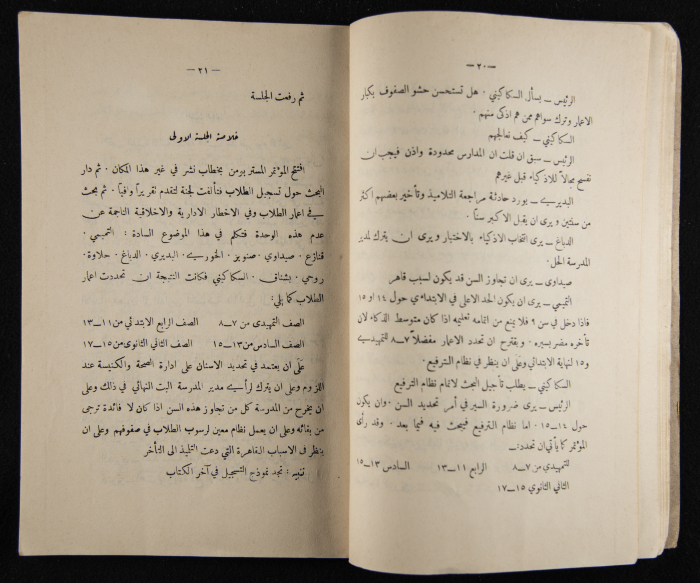 — ٢٠ —
الرئيس — يسأل السكاكيني . هل تستحسن حشو الصفوف بكبار
الاعمار وترك سواهم ممن هم اذكى منهم .
السكاكيني — كيف نعالجهم
الرئيس — سبق ان قلت ان المدارس محدودة واذن فيجب ان
نفسح مجالاً للاذكياء قبل غيرهم
البديري — يورد حادثة مراجعة التلاميذ وتأخير بعضهم اكثر
من سنتين ويرى ان يقبل الاكبر سناً .
الدباغ — يرى انتخاب الاذكياء بالاختيار ويرى ان يترك لمدير
المدرسة الحل .
صيداوي — يرى ان تجاوز السن قد يكون لسبب قاهر
التميمي — يرى ان يكون الحد الاعلى في الابتدائي حول ١٤ او ١٥
فاذا دخل في سن ٩ فلا يمنع من اتمامه تعليمه اذا كان متوسط الذكاء لان
تأخره مضر بسيره . ويقترح ان تحدد الاعمار مفضلاً ٧—٨ للتمهيدي
و١٥ لنهاية الابتدائي وعلى ان ينظر في نظام الترفيع .
السكاكيني — يطلب تأجيل البحث لاتمام نظام الترفيع
الرئيس — يرى ضرورة السير في أمر تحديد السن . وان يكون
حول ١٤—١٥ . اما نظام الترفيع فيبحث فيه فيما بعد . وقد رأى
المؤتمر كما يأتي ان تحدد : —
للتمهيدي من ٧—٨ الرابع ١١—١٣ السادس ١٣—١٥
الثاني الثانوي ١٥—١٧
— ٢١ —
ثم رفعت الجلسة
خلاصة الجلسة الاولى
افتتح المؤتمر المستر بومن بخطاب نشر في غير هذا المكان . ثم دار
البحث حول تسجيل الطلاب فتألفت لجنة لتقدم تقريراً وافياً . ثم بحث
في اعمار الطلاب وفي الاخطار الادارية والاخلاقية الناتجة عن
عدم هذه الوحدة فتكلم في هذا الموضوع السادة : التميمي .
قنازع . صيداوي . صنوبر . الخوري . البديري . الدباغ . حلاوة .
روحي . بشناق . السكاكيني فكانت النتيجة ان تحددت اعمار
الطلاب كما يلي :
الصف التمهيدي من ٧—٨ الصف الرابع الابتدائي من ١١—١٣
الصف السادس من ١٣—١٥ الصف الثاني الثانوي من ١٥—١٧
على ان يعتمد في تحديد الاسنان على ادارة الصحة والكنيسة عند
اللزوم وعلى ان يترك لرأي مدير المدرسة البت النهائي في ذلك وعلى
ان يخرج من المدرسة كل من تجاوز هذه السن اذا كان لا فائدة ترجى
من بقائه وعلى ان يعمل نظام معين لرسوب الطلاب في صفوفهم وعلى ان
ينظر في الاسباب القاهرة التي دعت التلميذ الى التأخر
تنبيه : تجد نموذج التسجيل في آخر الكتاب